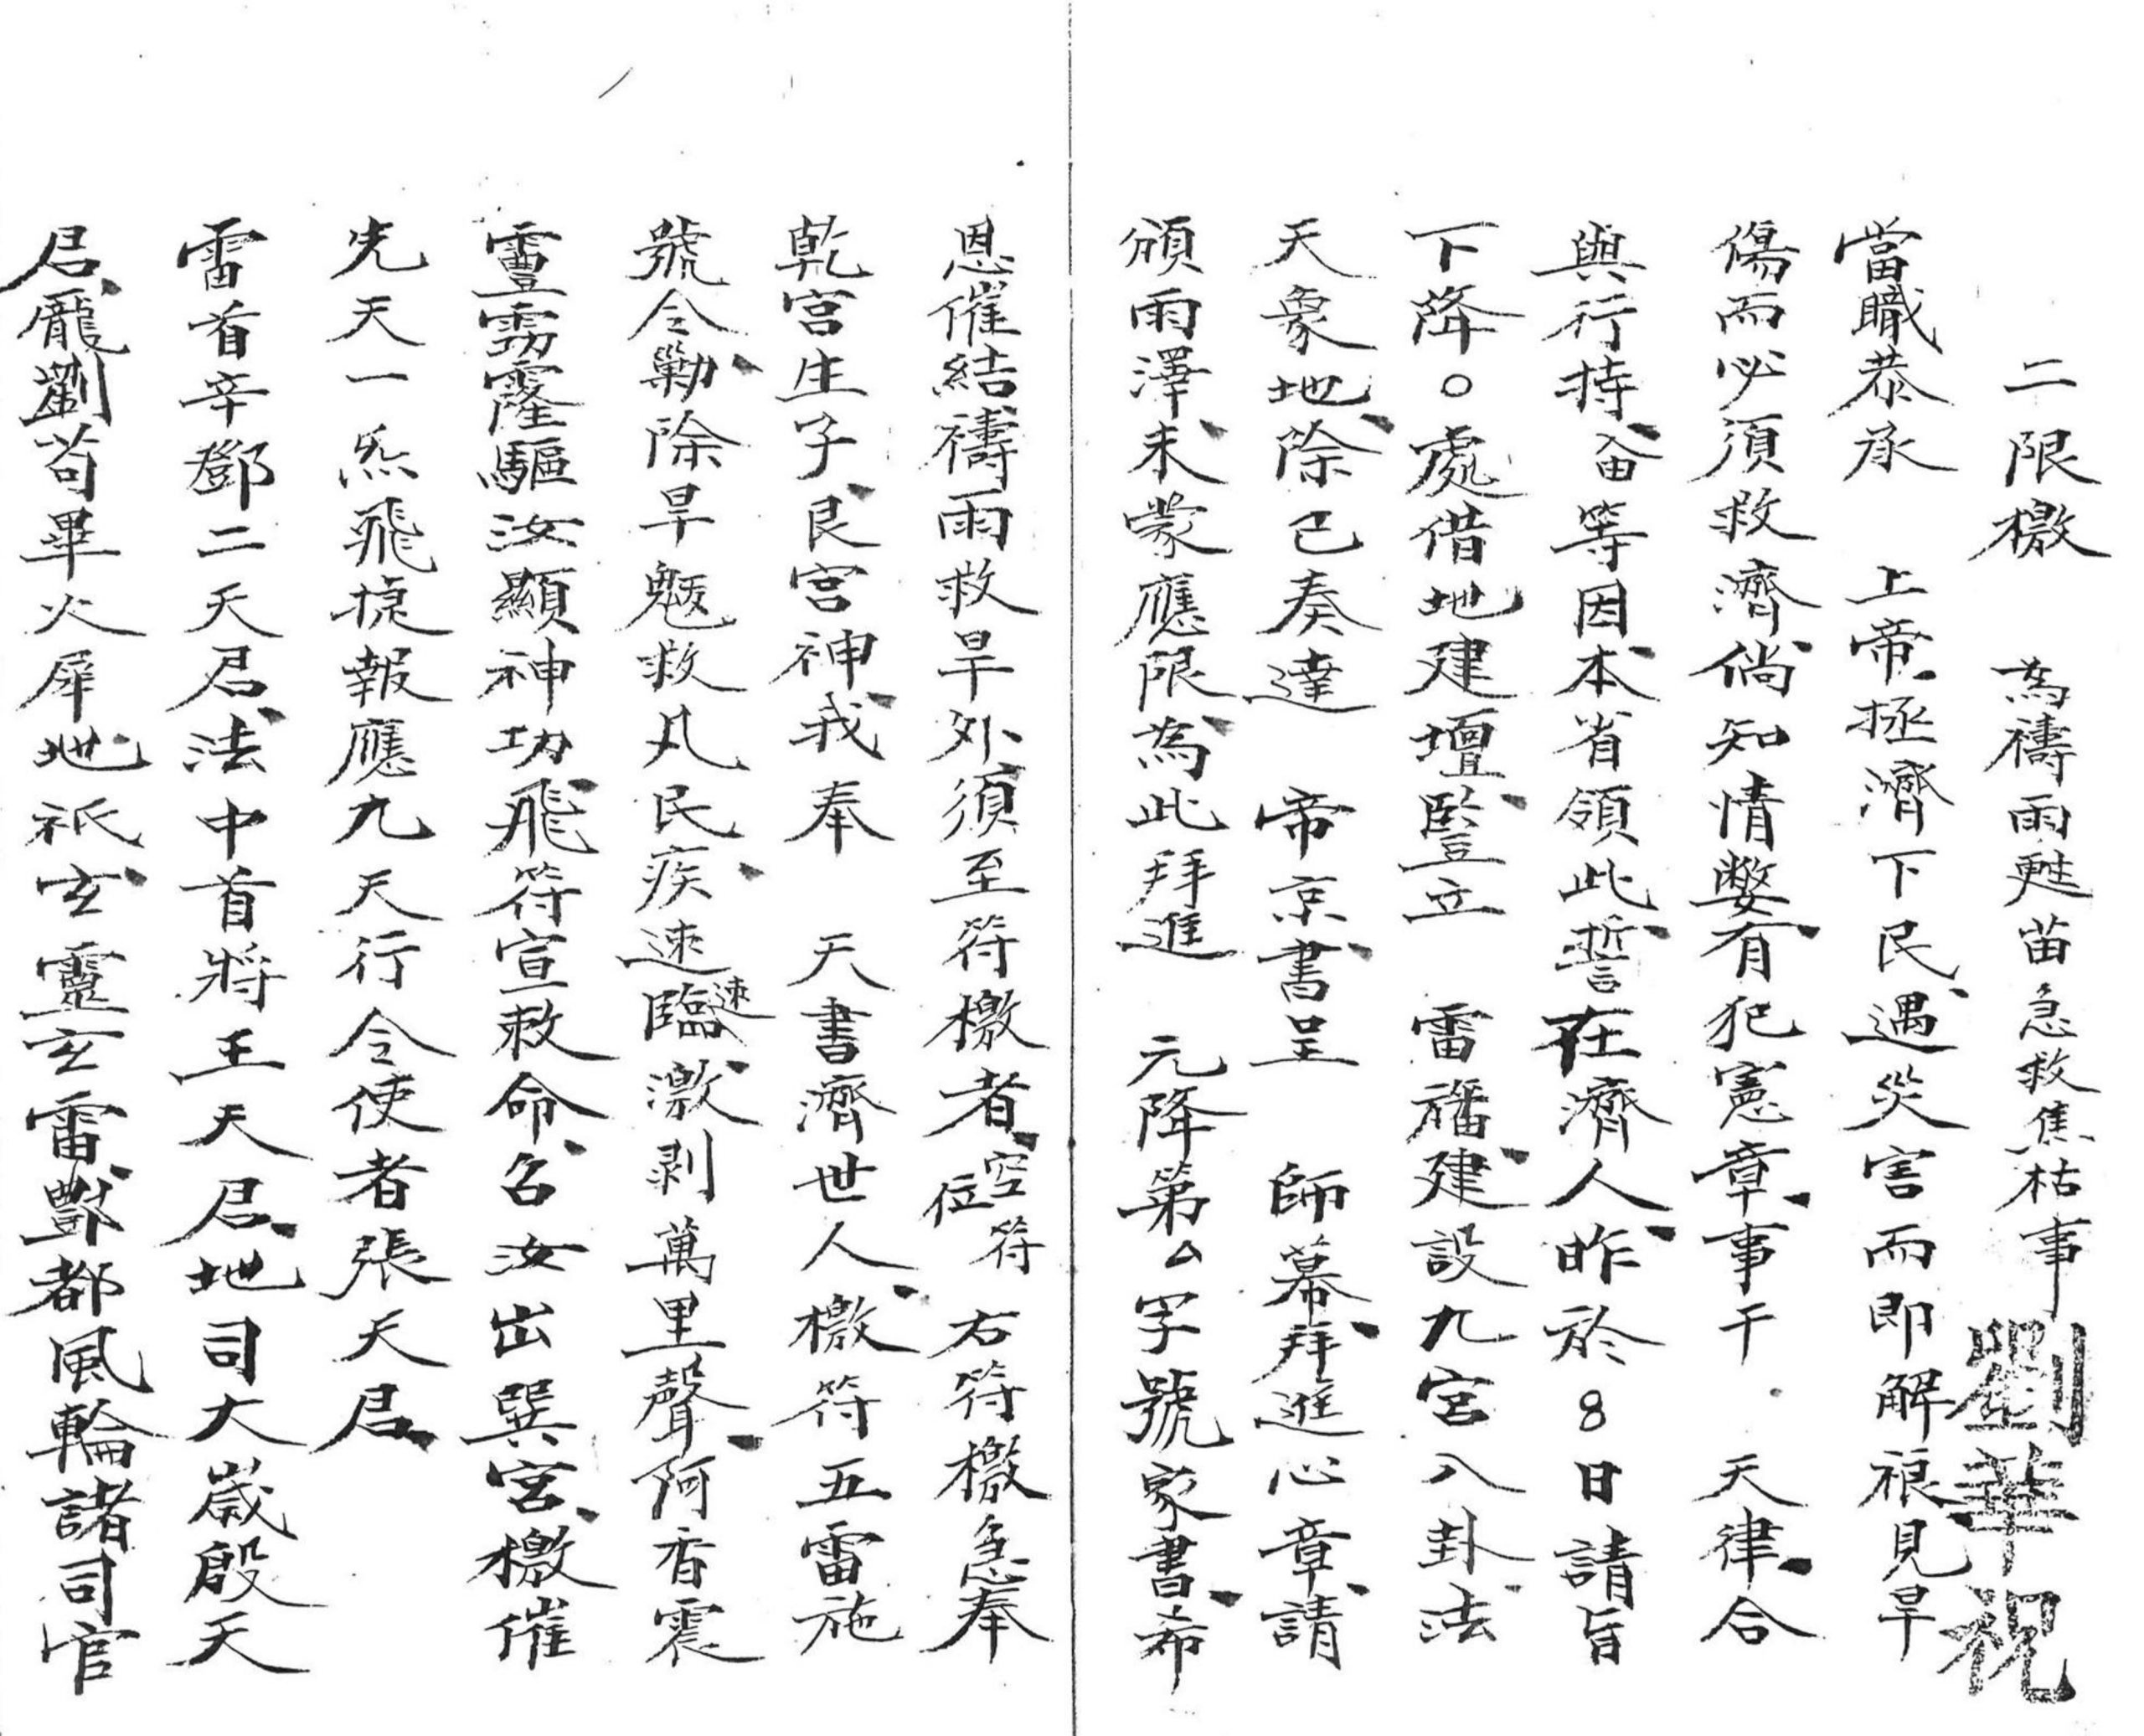 二限檄 為禱雨甦苗急救焦枯事 劉華祝
當職恭承 上帝拯濟下民遇災害而即解裉見旱
傷而必須救濟倘知情獘有犯憲章事干 天律合
與行持畓等因本省領此誓在濟人昨於8日請旨
下降○處借地建壇豎立 雷旛建設九宮八卦法
天象地除已奏達 帝京書呈 師幕拜進心章請
頒雨澤未蒙應限為此拜進 元降第厶字號家書希
恩催結禱雨救旱外須至符檄者空符位 右符檄急奉
乾宮生子艮宮神我奉 天書濟世人檄符五雷施
號令勦除旱魃救凡民疾速速臨激剥萬里聲阿香震
霻霧霳驅汝顯神功飛符宣敕命召汝出巽宮檄催
先天一炁飛捷報應九天行令使者張天君
雷首辛鄧二天君法中首將王天君地司大嵗殷天
君龐劉苟畢火犀地祇玄靈玄雷酆都風輪諸司官